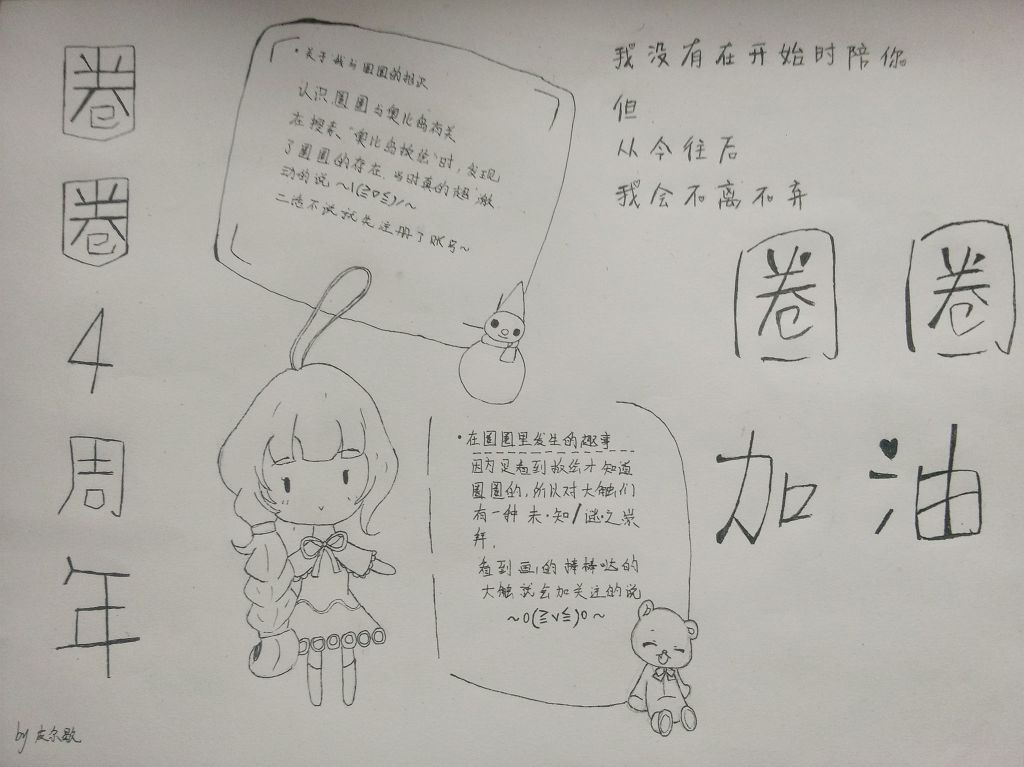 圈
圈
4
周
年
·关于我与圈圈的相识
认识圈圈与奥比岛有关
在搜索“奥比岛板绘”时,发现
了圈圈的存在.当时真的超激
动的说 ~\(≧▽≦)/~
二话不说就先注册了账号~
我没有在开始时陪你
但
从今往后
我会不离不弃
圈 圈
加 油
·在圈圈里发生的趣事
因为是看到板绘才知道
圈圈的,所以对大触们
有一种未·知/谜·之崇
拜.
看到画的棒棒哒的
大触就会加关注的说
~o(≧v≦)o~
by 皮尔歇